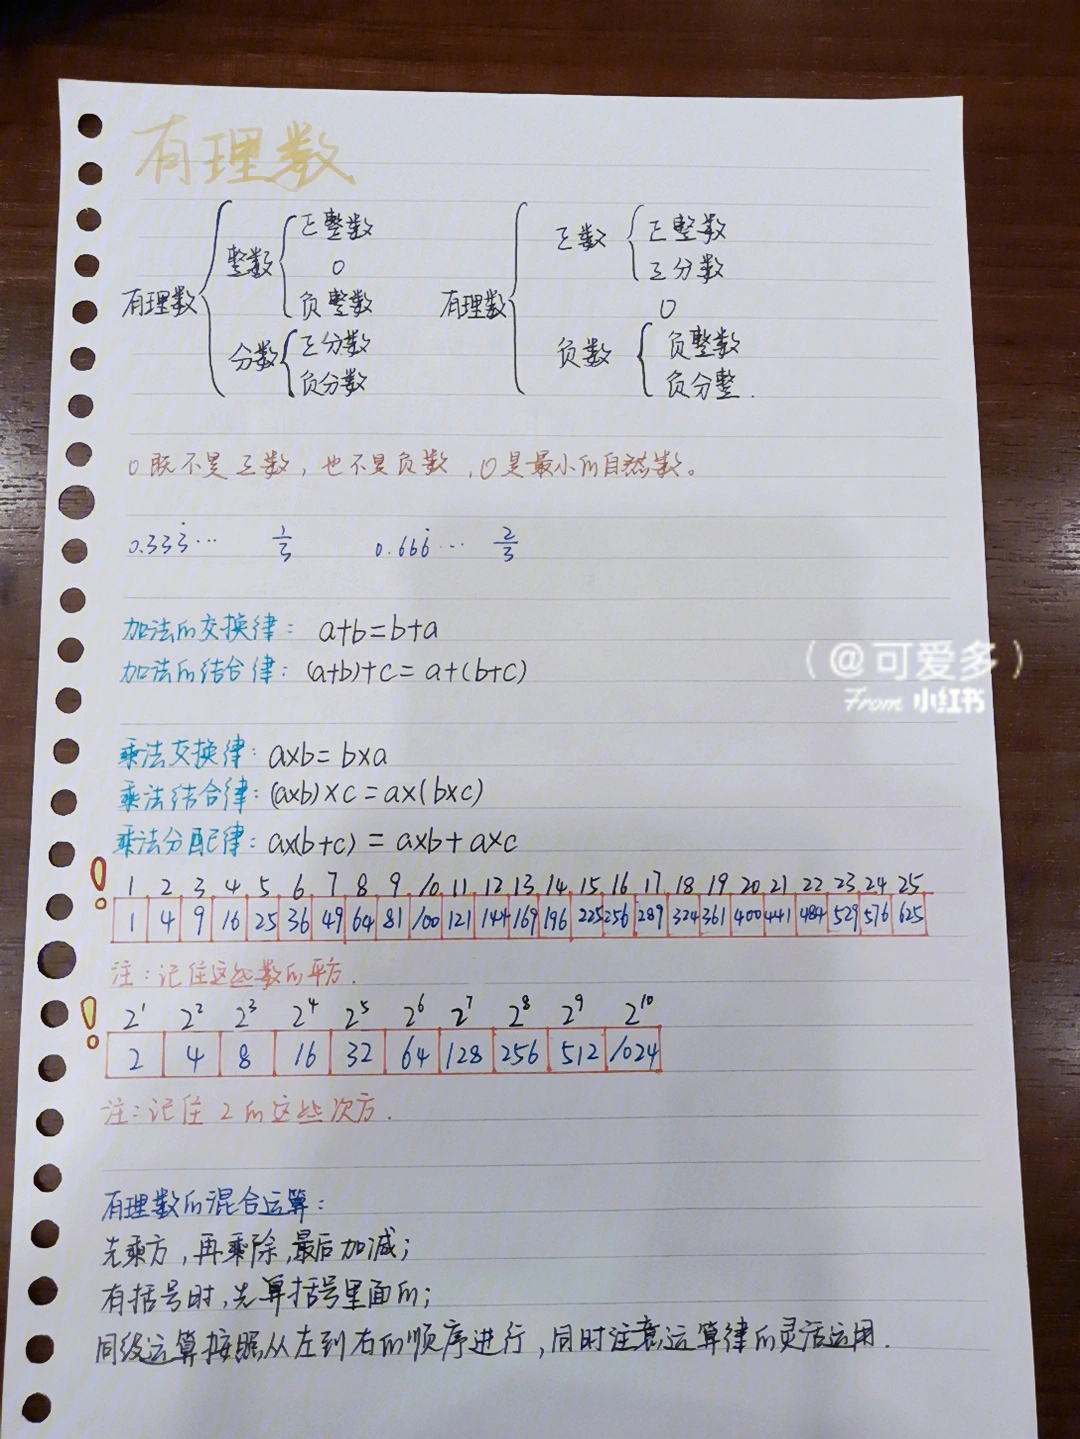 有理数
有理数 整数 正整数 0 负整数
分数 正分数 负分数
有理数 正数 正整数 正分数
0
负数 负整数 负分整.
0既不是正数，也不是负数，0是最小的自然数。
0.333̇… 1/3 0.666̇… 2/3
加法的交换律：a+b=b+a
加法的结合律：(a+b)+c=a+(b+c)
(@可爱多)
From 小红书
乘法交换律：a×b=b×a
乘法结合律：(a×b)×c=a×(b×c)
乘法分配律：a×(b+c)=a×b+a×c
! 1 2 3 4 5 6 7 8 9 10 11 12 13 14 15 16 17 18 19 20 21 22 23 24 25
1 4 9 16 25 36 49 64 81 100 121 144 169 196 225 256 289 324 361 400 441 484 529 576 625
注：记住这些数的平方.
! 2¹ 2² 2³ 2⁴ 2⁵ 2⁶ 2⁷ 2⁸ 2⁹ 2¹⁰
2 4 8 16 32 64 128 256 512 1024
注：记住2的这些次方.
有理数的混合运算：
先乘方，再乘除，最后加减；
有括号时，先算括号里面的；
同级运算按照从左到右的顺序进行，同时注意运算律的灵活运用.